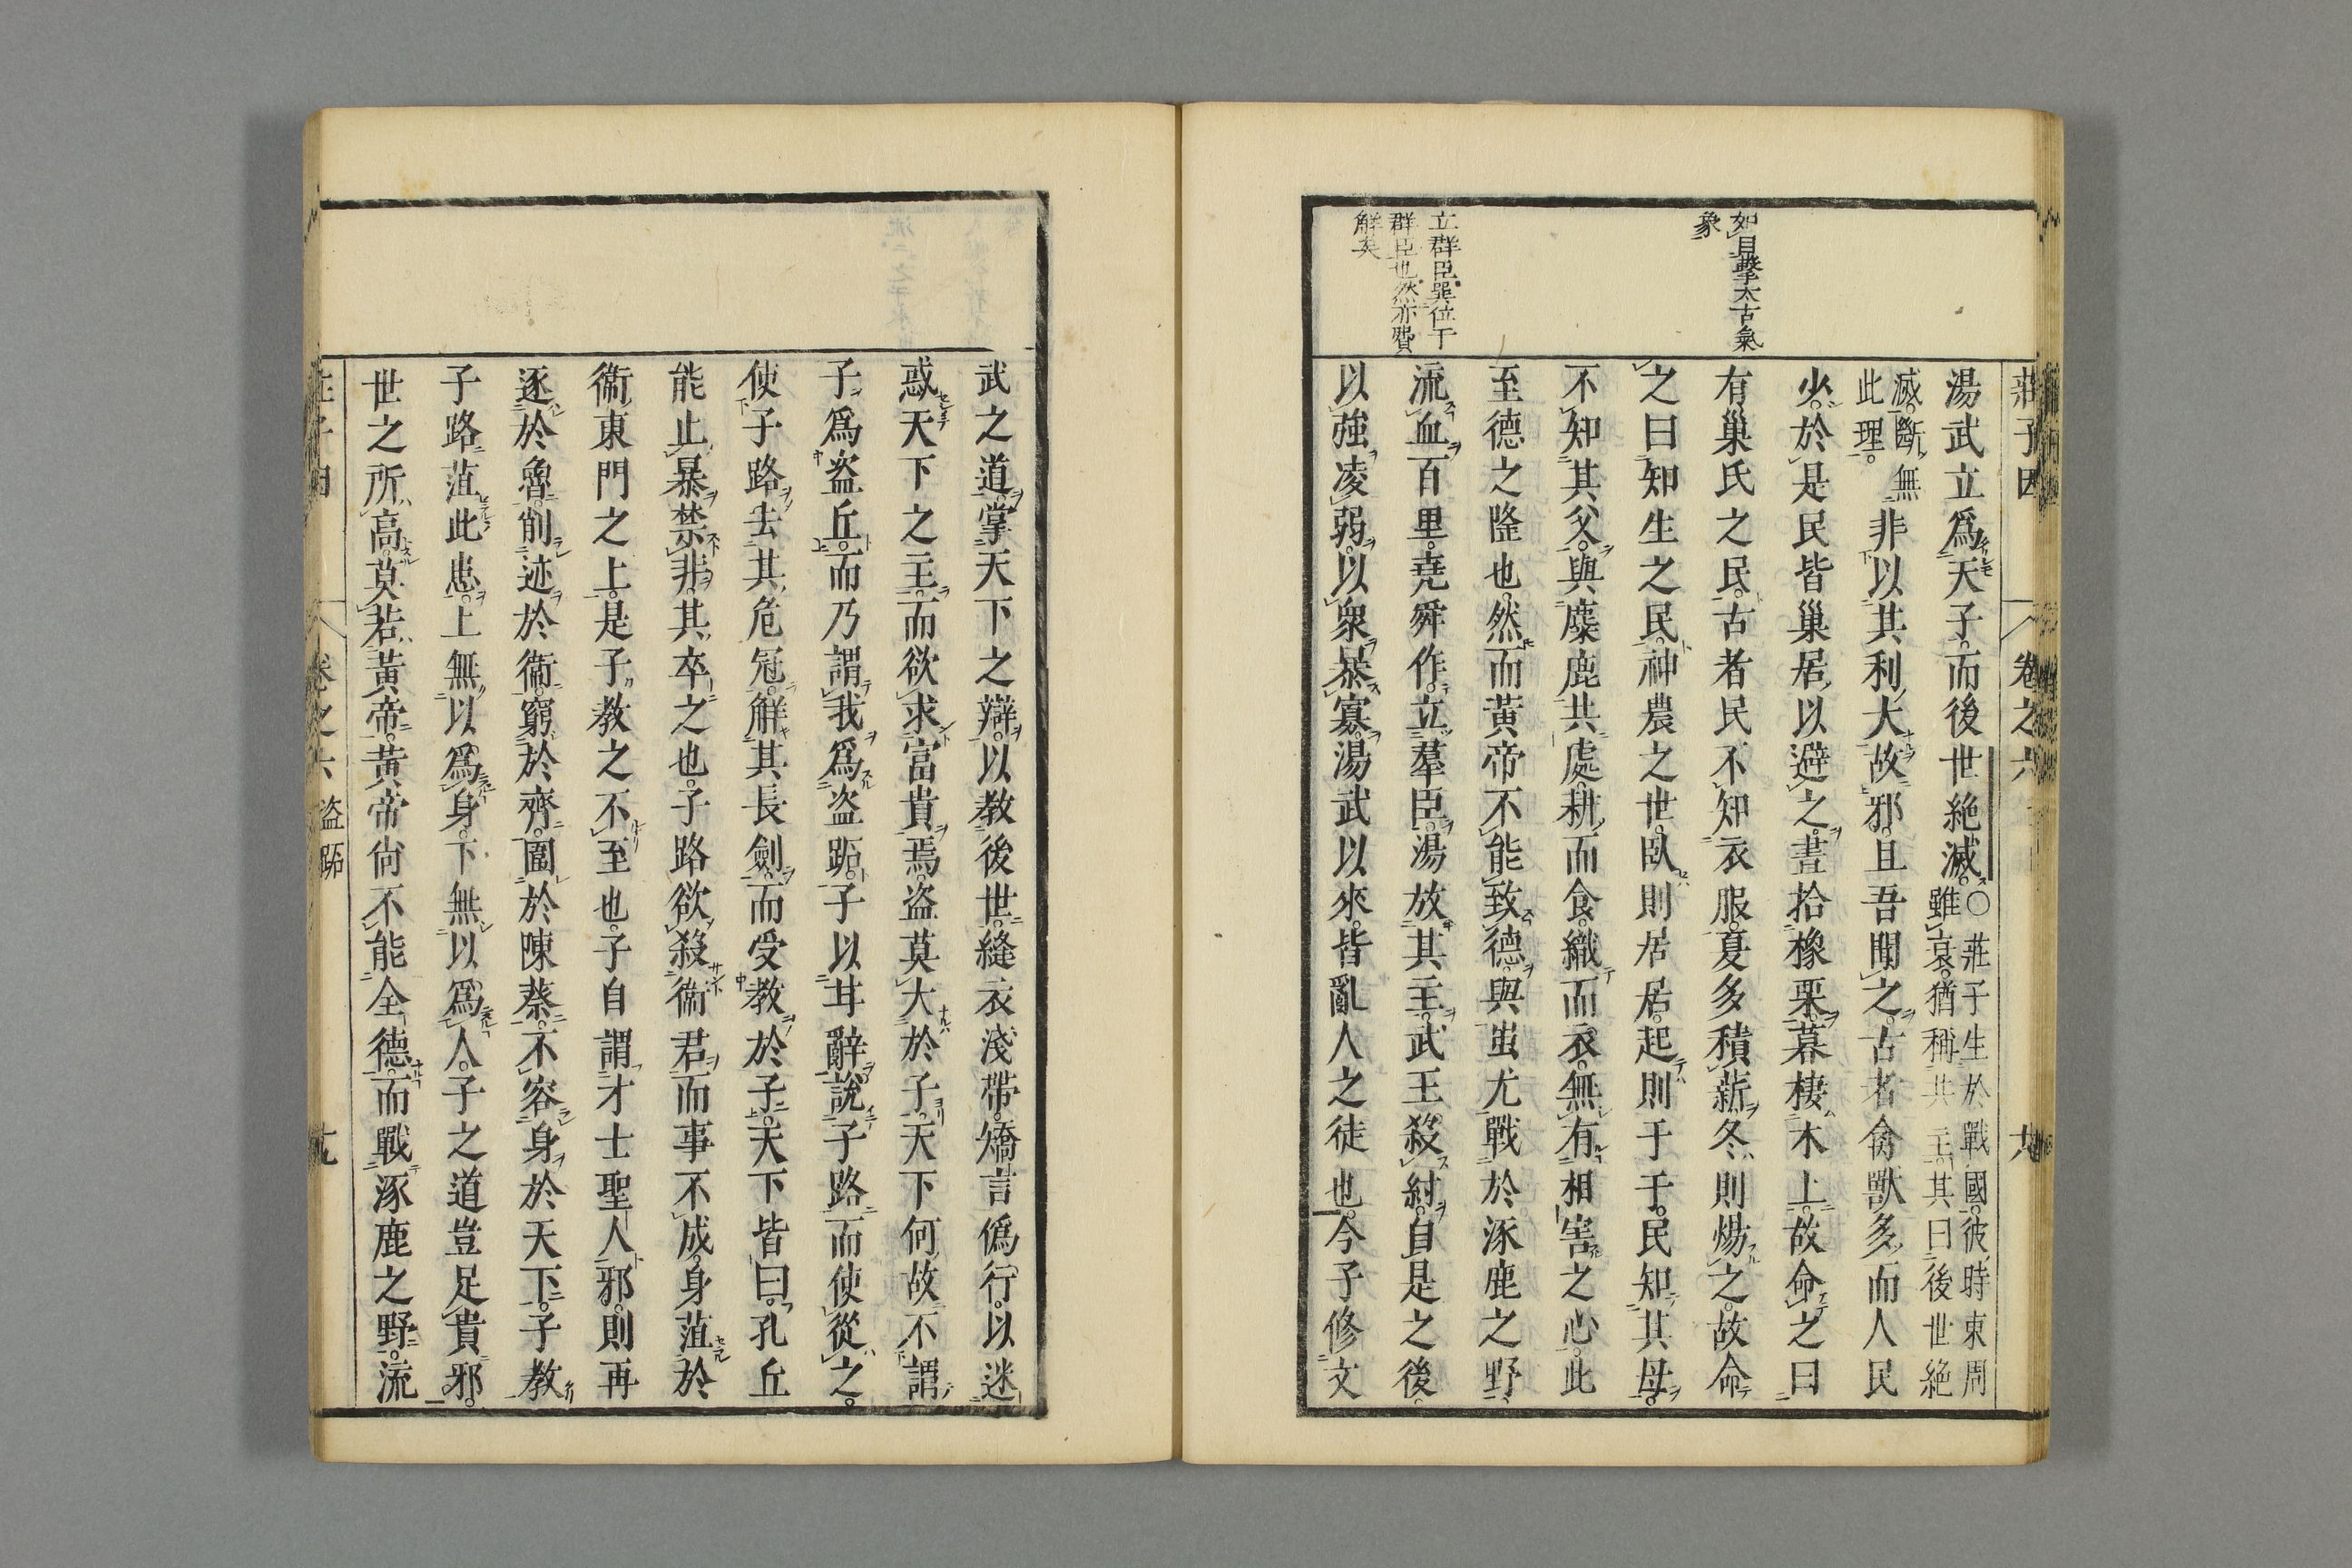 莊子因 卷之六
如目擊太古氣
象
立群臣選位于
群臣也然亦費
解矣
湯武立爲天子而後世絶滅○莊子生於戰國彼時東周
雖衰猶稱共主其曰後世絶
滅斷無
此理非以其利大故邪且吾聞之古者禽獸多而人民
少於是民皆巢居以避之晝拾橡栗暮棲木上故命之曰
有巢氏之民古者民不知衣服夏多積薪冬則煬之故命
之曰知生之民神農之世臥則居居起則于于民知其母
不知其父與麋鹿共處耕而食織而衣無有相害之心此
至德之隆也然而黃帝不能致德與蚩尤戰於涿鹿之野
流血百里堯舜作立羣臣湯放其主武王殺紂自是之後
以強凌弱以衆暴寡湯武以來皆亂人之徒也今子修文
武之道掌天下之辯以教後世縫衣淺帶矯言僞行以迷
惑天下之主而欲求富貴焉盜莫大於子天下何故不謂
子爲盜丘而乃謂我爲盜跖子以甘辭說子路而使從之
使子路去其危冠解其長劍而受教於子天下皆曰孔丘
能止暴禁非其卒之也子路欲殺衞君而事不成身菹於
衞東門之上是子教之不至也子自謂才士聖人邪則再
逐於魯削迹於衞窮於齊圍於陳蔡不容身於天下子教
子路菹此患上無以爲身下無以爲人子之道豈足貴邪
世之所高莫若黃帝黃帝尙不能全德而戰涿鹿之野流
莊子因 卷之六 盜跖 十九